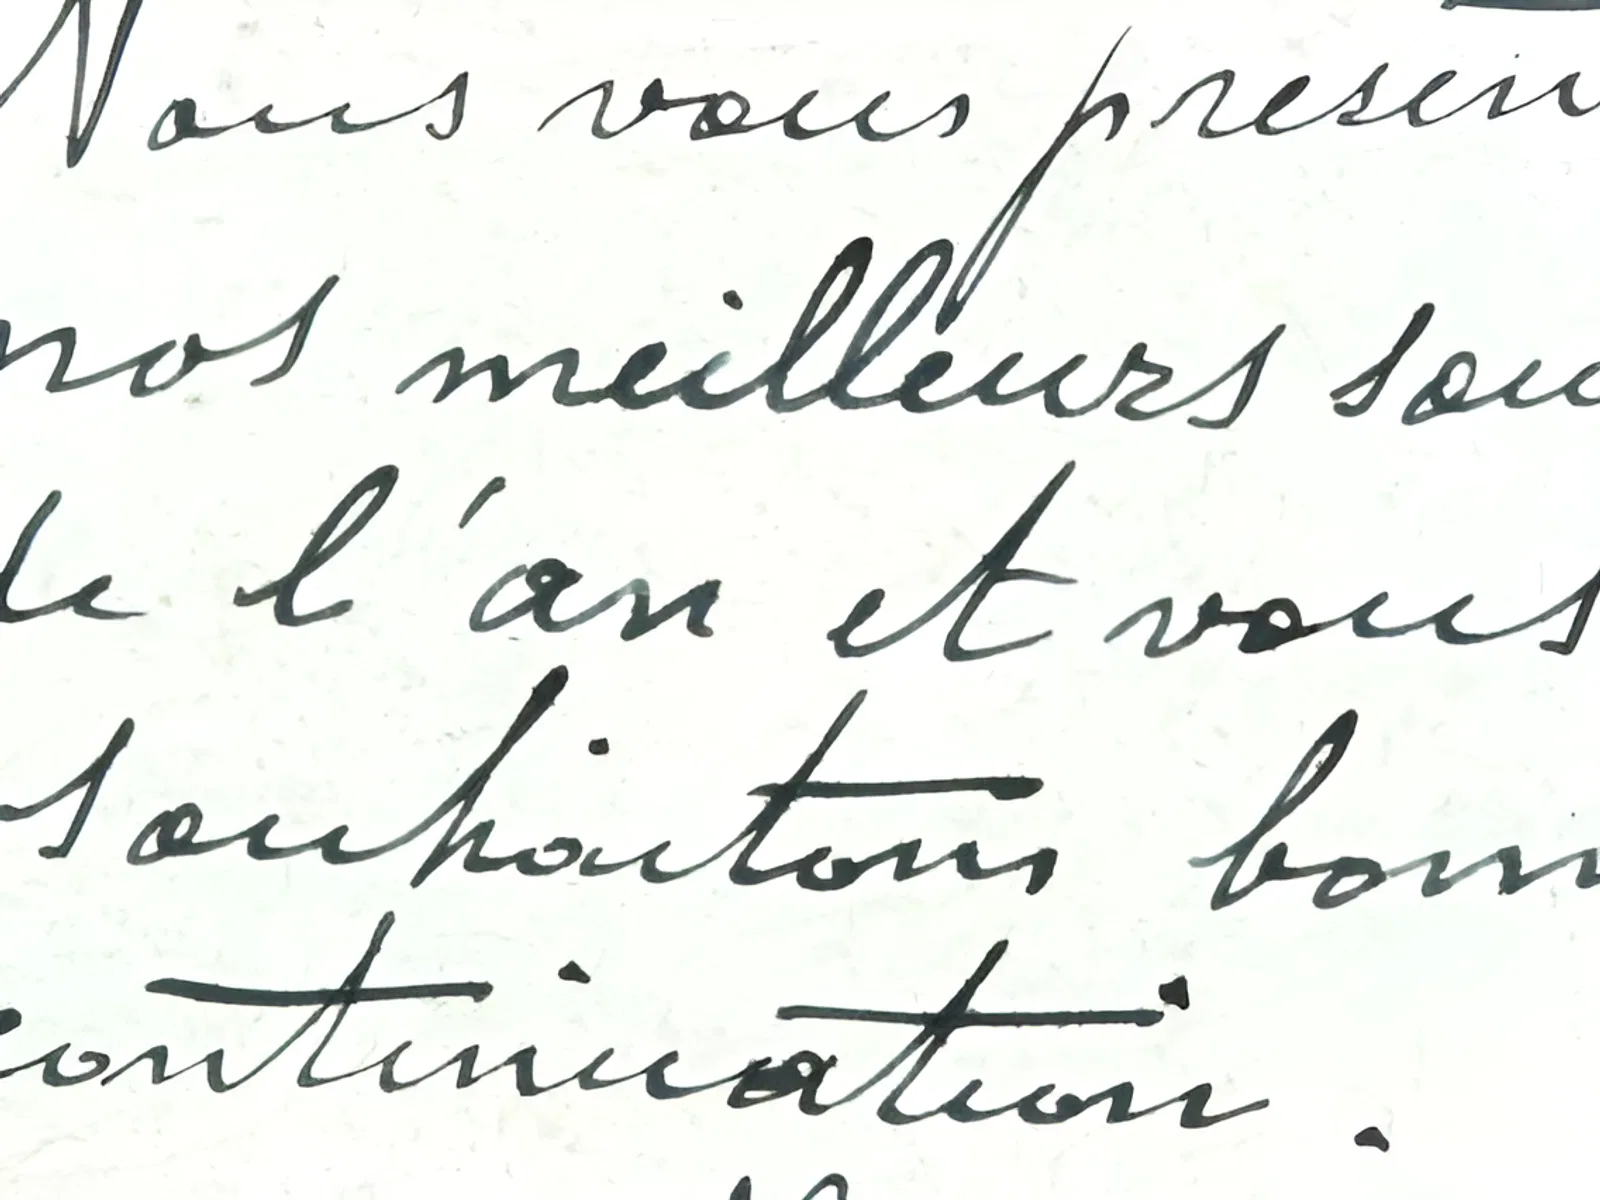 Nous vous presen
nos meilleurs sou
de l'an et vous
souhaitons bonn
continuation.